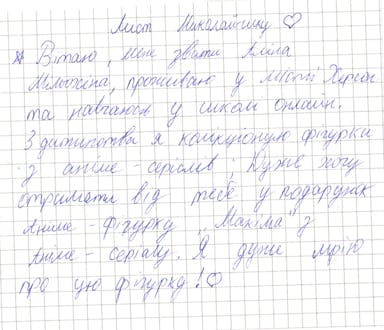 Лист Миколайчику ♡
Вітаю, мене звати Аліна
проживаю у місті Херсон
та навчаюсь у школі онлайн.
З дитинства я колекціоную фігурки
з аніме-серіалів. Дуже хочу
отримати від тебе у подарунок
Аниме-фігурку „Макіма" з
Аніме-серіалу. Я дуже мрію
про цю фігурку! ♡